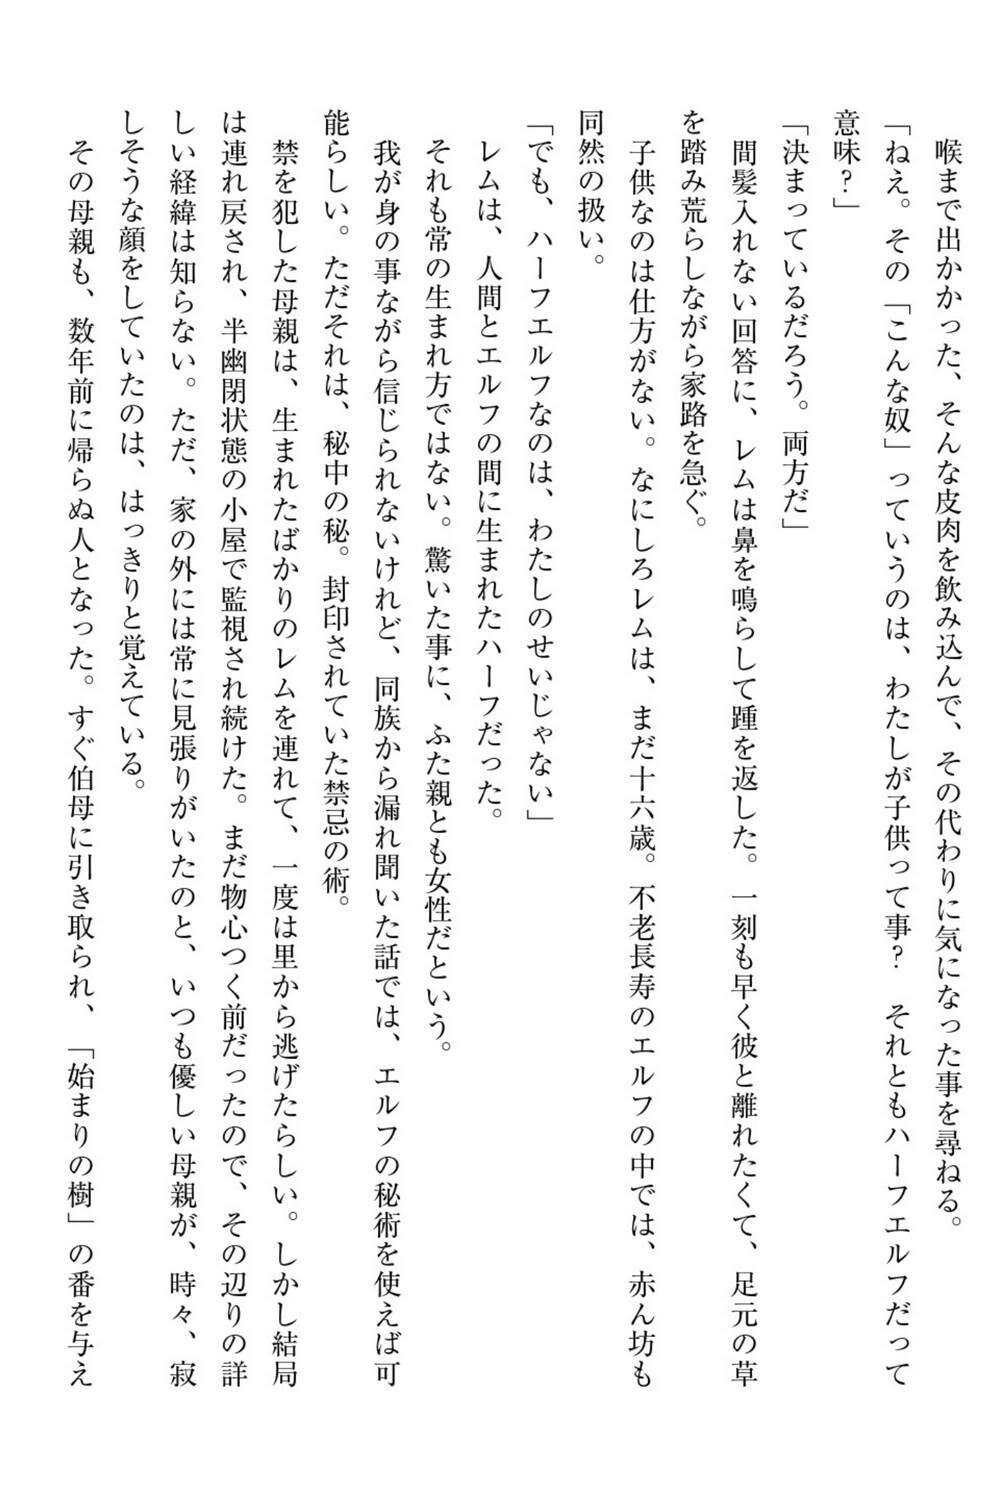 喉まで出かかった、そんな皮肉を飲み込んで、その代わりに気になった事を尋ねる。
「ねえ。その「こんな奴」っていうのは、わたしが子供って事？　それともハーフエルフだって
意味？」
「決まっているだろう。両方だ」
間髪入れない回答に、レムは鼻を鳴らして踵を返した。一刻も早く彼と離れたくて、足元の草
を踏み荒らしながら家路を急ぐ。
子供なのは仕方がない。なにしろレムは、まだ十六歳。不老長寿のエルフの中では、赤ん坊も
同然の扱い。
「でも、ハーフエルフなのは、わたしのせいじゃない」
レムは、人間とエルフの間に生まれたハーフだった。
それも常の生まれ方ではない。驚いた事に、ふた親とも女性だという。
我が身の事ながら信じられないけれど、同族から漏れ聞いた話では、エルフの秘術を使えば可
能らしい。ただそれは、秘中の秘。封印されていた禁忌の術。
禁を犯した母親は、生まれたばかりのレムを連れて、一度は里から逃げたらしい。しかし結局
は連れ戻され、半幽閉状態の小屋で監視され続けた。まだ物心つく前だったので、その辺りの詳
しい経緯は知らない。ただ、家の外には常に見張りがいたのと、いつも優しい母親が、時々、寂
しそうな顔をしていたのは、はっきりと覚えている。
その母親も、数年前に帰らぬ人となった。すぐ伯母に引き取られ、「始まりの樹」の番を与え